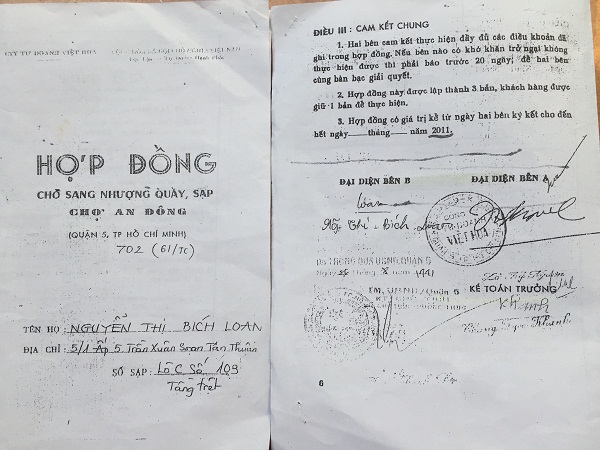 HỢP ĐỒNG
CHO SANG NHƯỢNG QUẦY, SẠP
CHỢ AN ĐÔNG
(QUẬN 5, TP HỒ CHÍ MINH)
702 (61/TC)
TÊN HỌ : NGUYỄN THỊ BÍCH LOAN
ĐỊA CHỈ : 5/1 Ấp 5 Trần Xuân Soạn Tân Thuận
SỐ SẠP : Lô C Số 109
Tầng trệt
ĐIỀU III : CAM KẾT CHUNG
1. Hai bên cam kết thực hiện đầy đủ các điều khoản đã
ghi trong hợp đồng. Nếu bên nào có khó khăn trở ngại không
thực hiện được thì phải báo trước 20 ngày, để hai bên
cùng bàn bạc giải quyết.
2. Hợp đồng này được lập thành 3 bản, khách hàng được
giữ 1 bản để thực hiện.
3. Hợp đồng có giá trị kể từ ngày hai bên ký kết cho đến
hết ngày tháng năm 2011.
ĐẠI DIỆN BÊN B ĐẠI DIỆN BÊN A
Loan
Thị Bích
VIỆT HOA
KẾ TOÁN TRƯỞNG
6